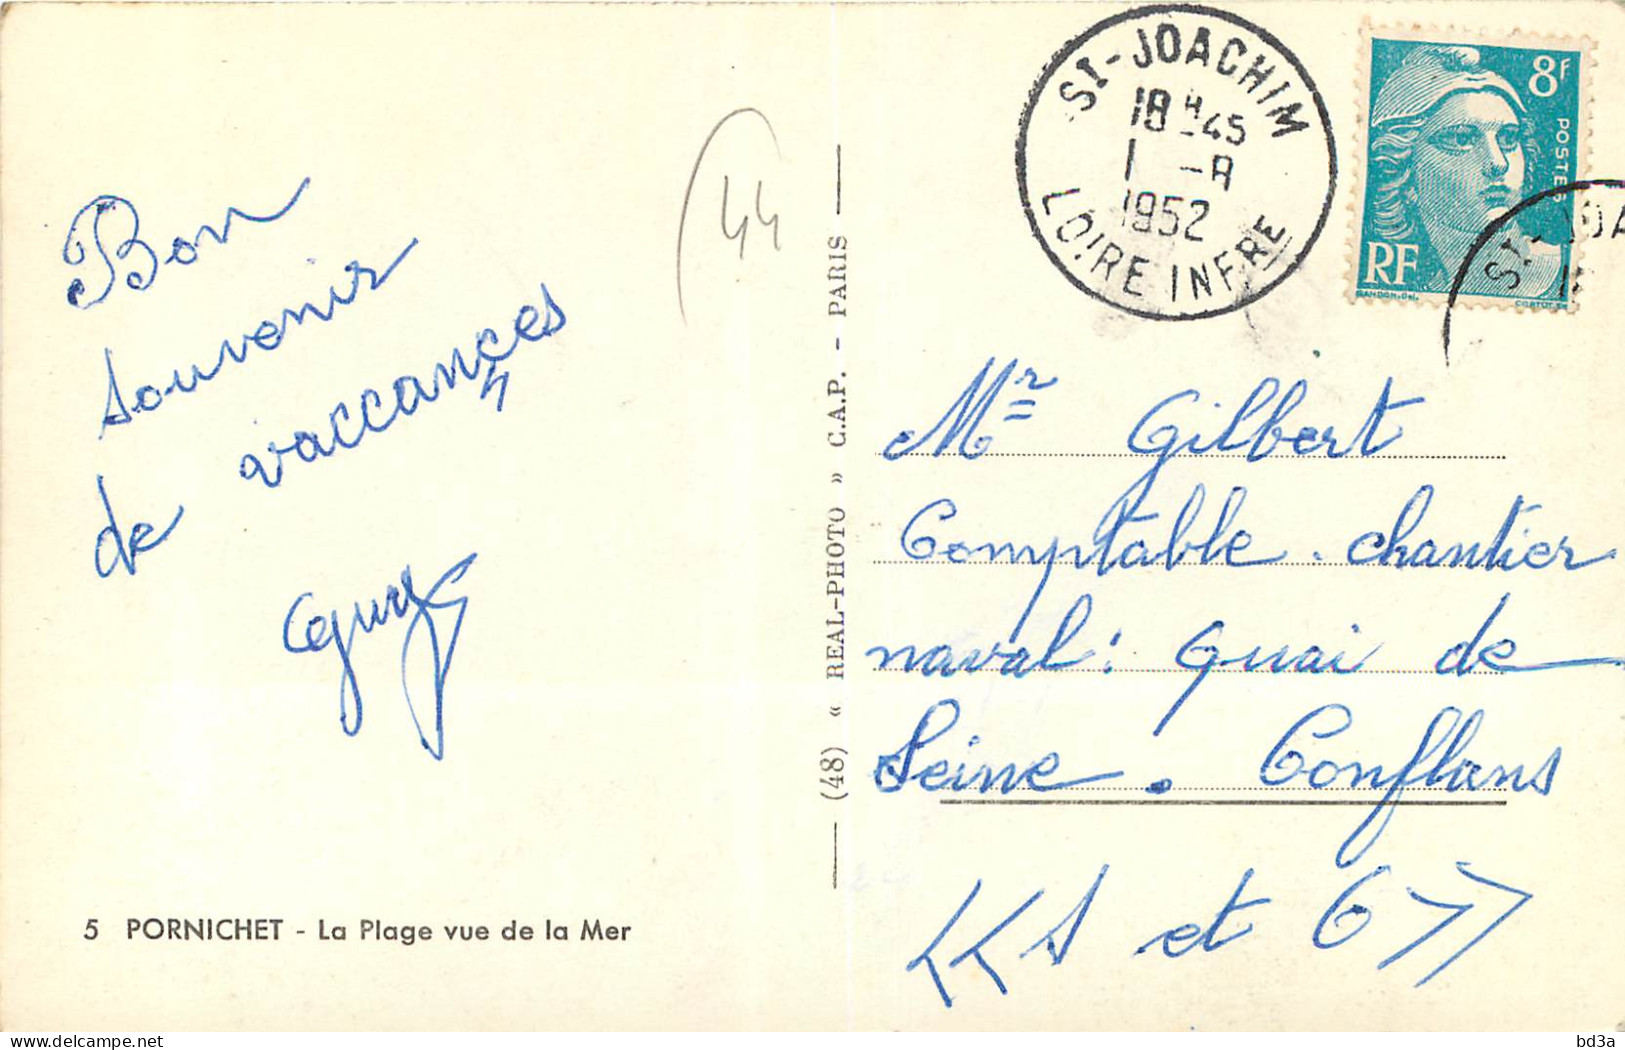 Bon
souvenir
de vaccançes
Guy
44
5 PORNICHET - La Plage vue de la Mer
(48) « REAL-PHOTO » C.A.P. - PARIS
ST-JOACHIM
18 H 45
1 -8
1952
LOIRE INFRE
8F
POSTES
RF
GANDON.Del.
CORTOT.SC
ST-JOA
Mr Gilbert
Comptable . chantier
naval : Quai de
Seine . Conflans
<< S et O >>
delcampe.net
bd3a